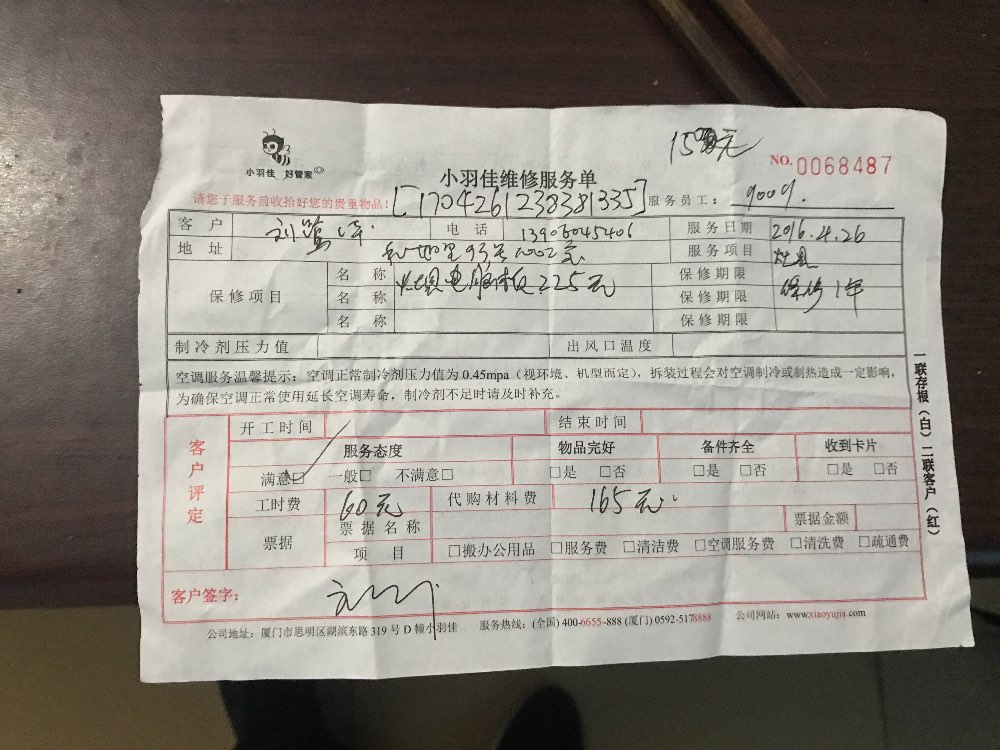 小羽佳 好管家
15 元
NO. 0068487
小羽佳维修服务单
请您于服务前收拾好您的贵重物品!
[170426123838 1335]
服务员工: 9009.
客户 刘 电话 13906045406 服务日期 2016.4.26
地址 里93号1002室 服务项目 灶具
保修项目
名称 灶具电脑板225元 保修期限 保修1年
名称 保修期限
名称 保修期限
制冷剂压力值 出风口温度
空调服务温馨提示：空调正常制冷剂压力值为 0.45mpa（视环境、机型而定），拆装过程会对空调制冷或制热造成一定影响，
为确保空调正常使用延长空调寿命，制冷剂不足时请及时补充。
一联存根（白）二联客户（红）
客户评定
开工时间 结束时间
服务态度 物品完好 备件齐全 收到卡片
满意□ 一般□ 不满意□ □是 □否 □是 □否 □是 □否
工时费 60元 代购材料费 165元
票据
票据名称 票据金额
项目 □搬办公用品 □服务费 □清洁费 □空调服务费 □清洗费 □疏通费
客户签字:
公司地址: 厦门市思明区湖滨东路 319 号 D 幢小羽佳 服务热线: (全国) 400-6655-888 (厦门) 0592-5178888 公司网站: www.xiaoyujia.com